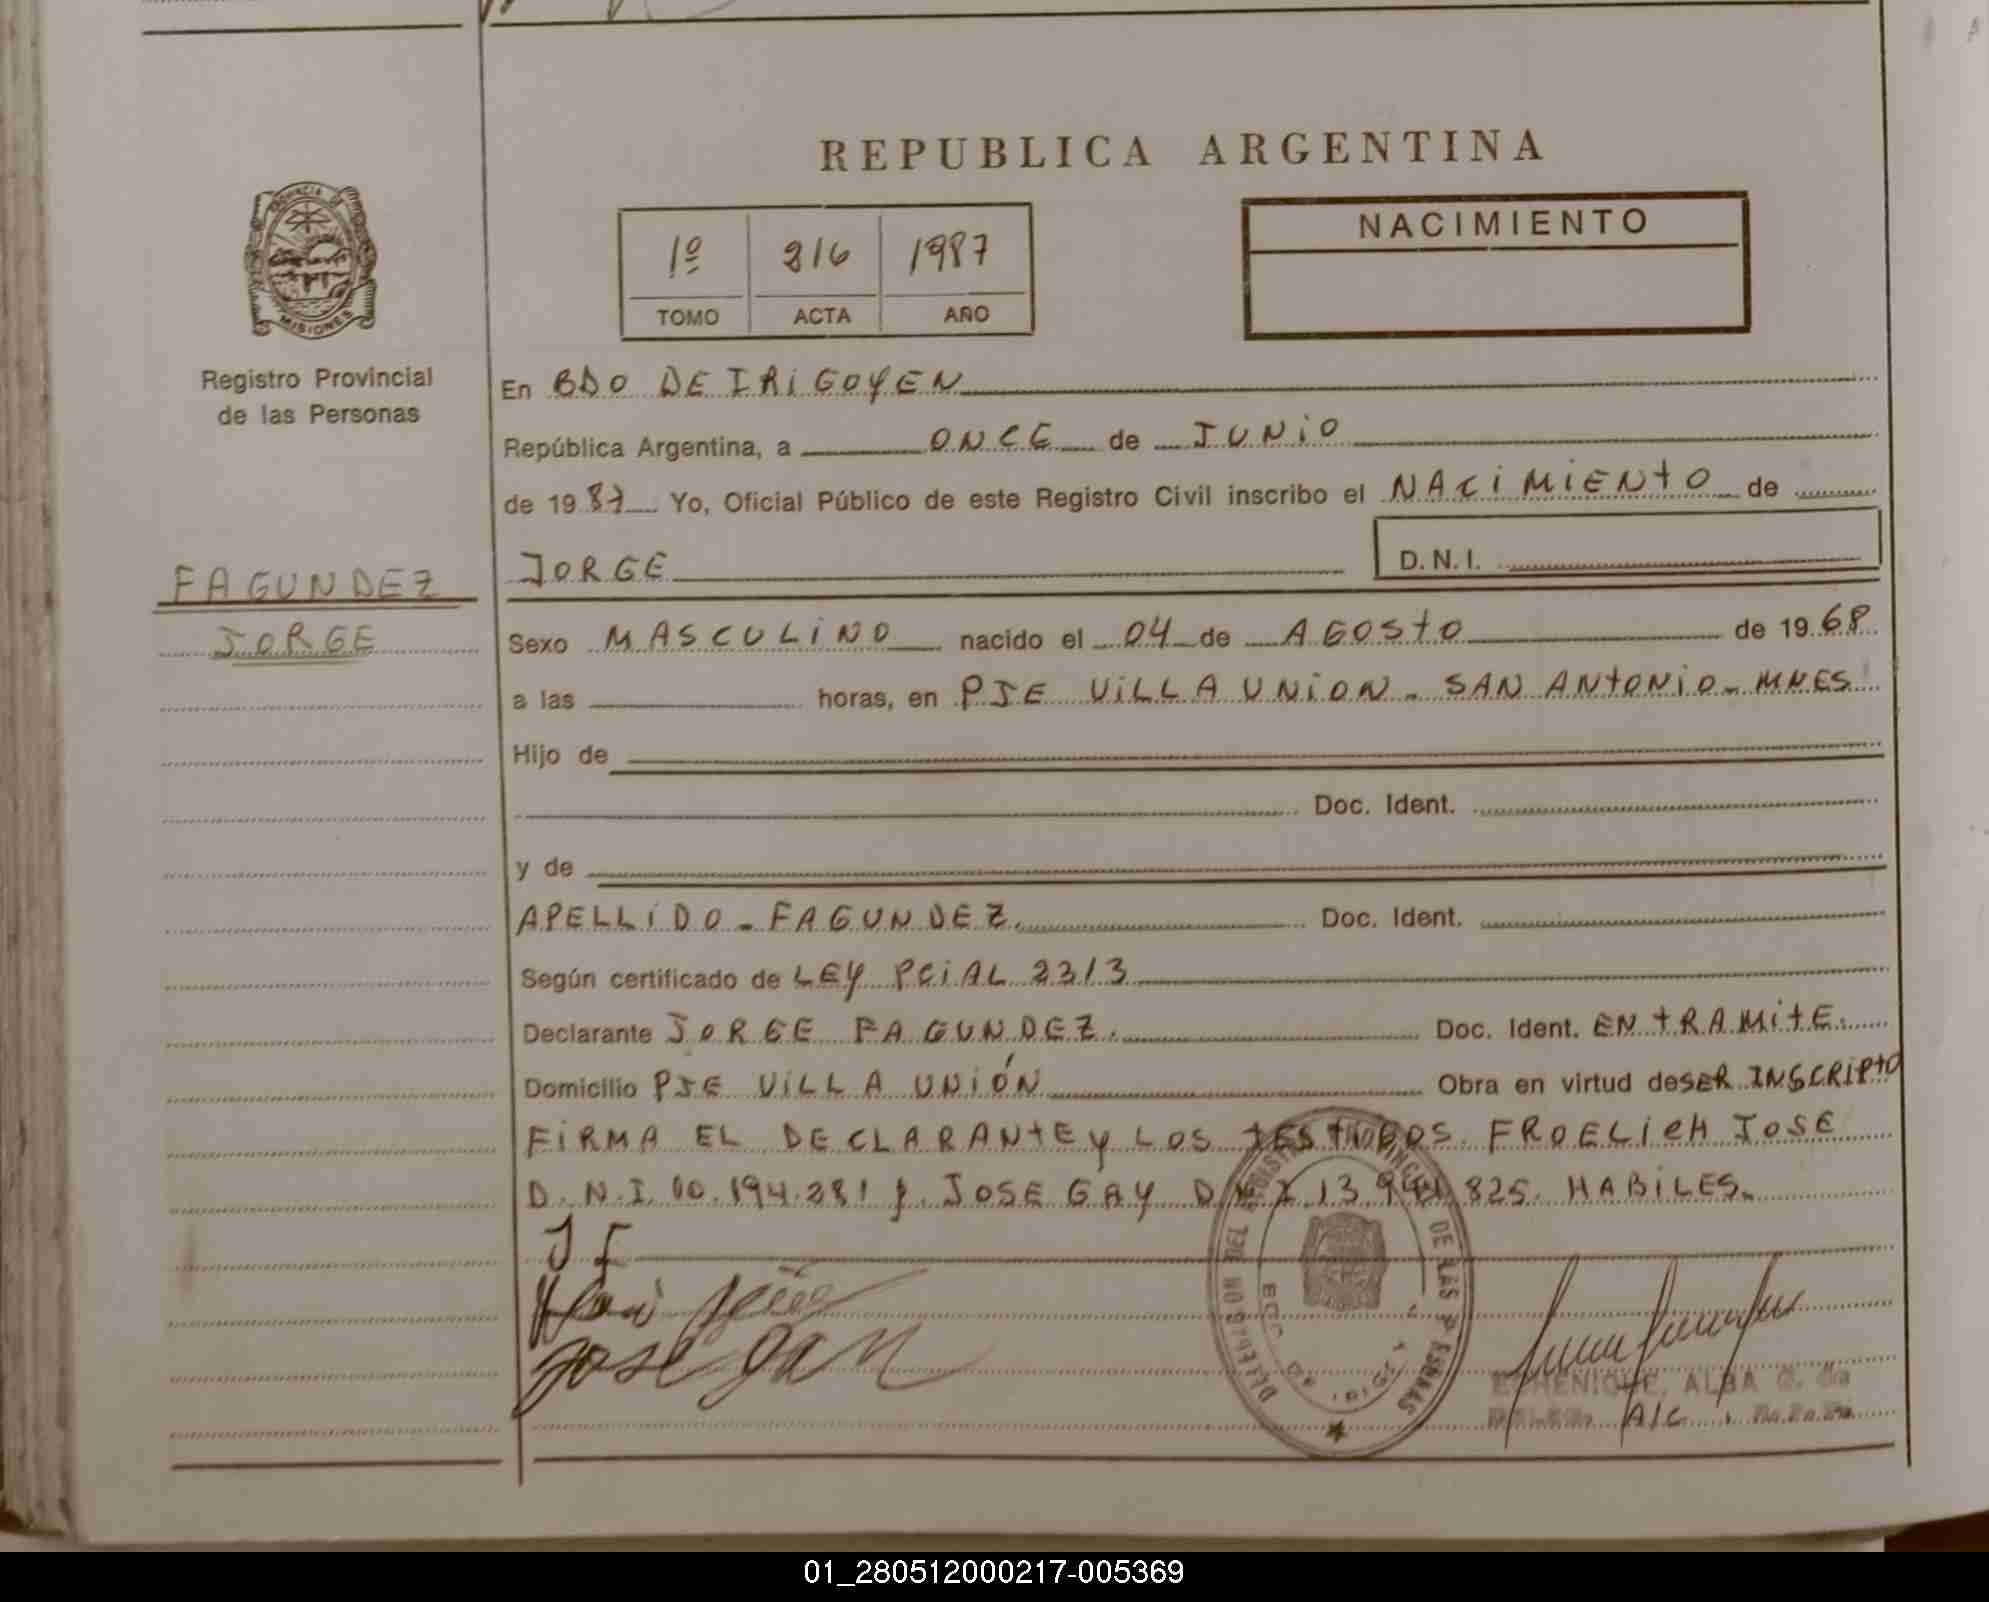 REPUBLICA ARGENTINA
PROVINCIA DE
MISIONES
Registro Provincial
de las Personas
1º 216 1987
TOMO ACTA AÑO
NACIMIENTO
En BDO DE IRIGOYEN
República Argentina, a ONCE de JUNIO
de 1987 Yo, Oficial Público de este Registro Civil inscribo el NACIMIENTO de
JORGE D.N.I.
FAGUNDEZ
JORGE
Sexo MASCULINO nacido el 04 de AGOSTO de 1968
a las horas, en PJE VILLA UNION - SAN ANTONIO - MNES
Hijo de
Doc. Ident.
y de
APELLIDO - FAGUNDEZ. Doc. Ident.
Según certificado de LEY PCIAL 2313
Declarante JORGE FAGUNDEZ. Doc. Ident. EN TRAMITE.
Domicilio PJE VILLA UNIÓN Obra en virtud de SER INSCRIPTO
FIRMA EL DECLARANTE y LOS TESTIGOS FROELICH JOSE
D.N.I. 10.194.281 y JOSE GAY DNI 13.941.825. HABILES.
J F
Jose Gay
DEL REGISTRO PROVINCIAL DE LAS PERSONAS
ECHENIQUE, ALBA G. de
A/C
01_280512000217-005369